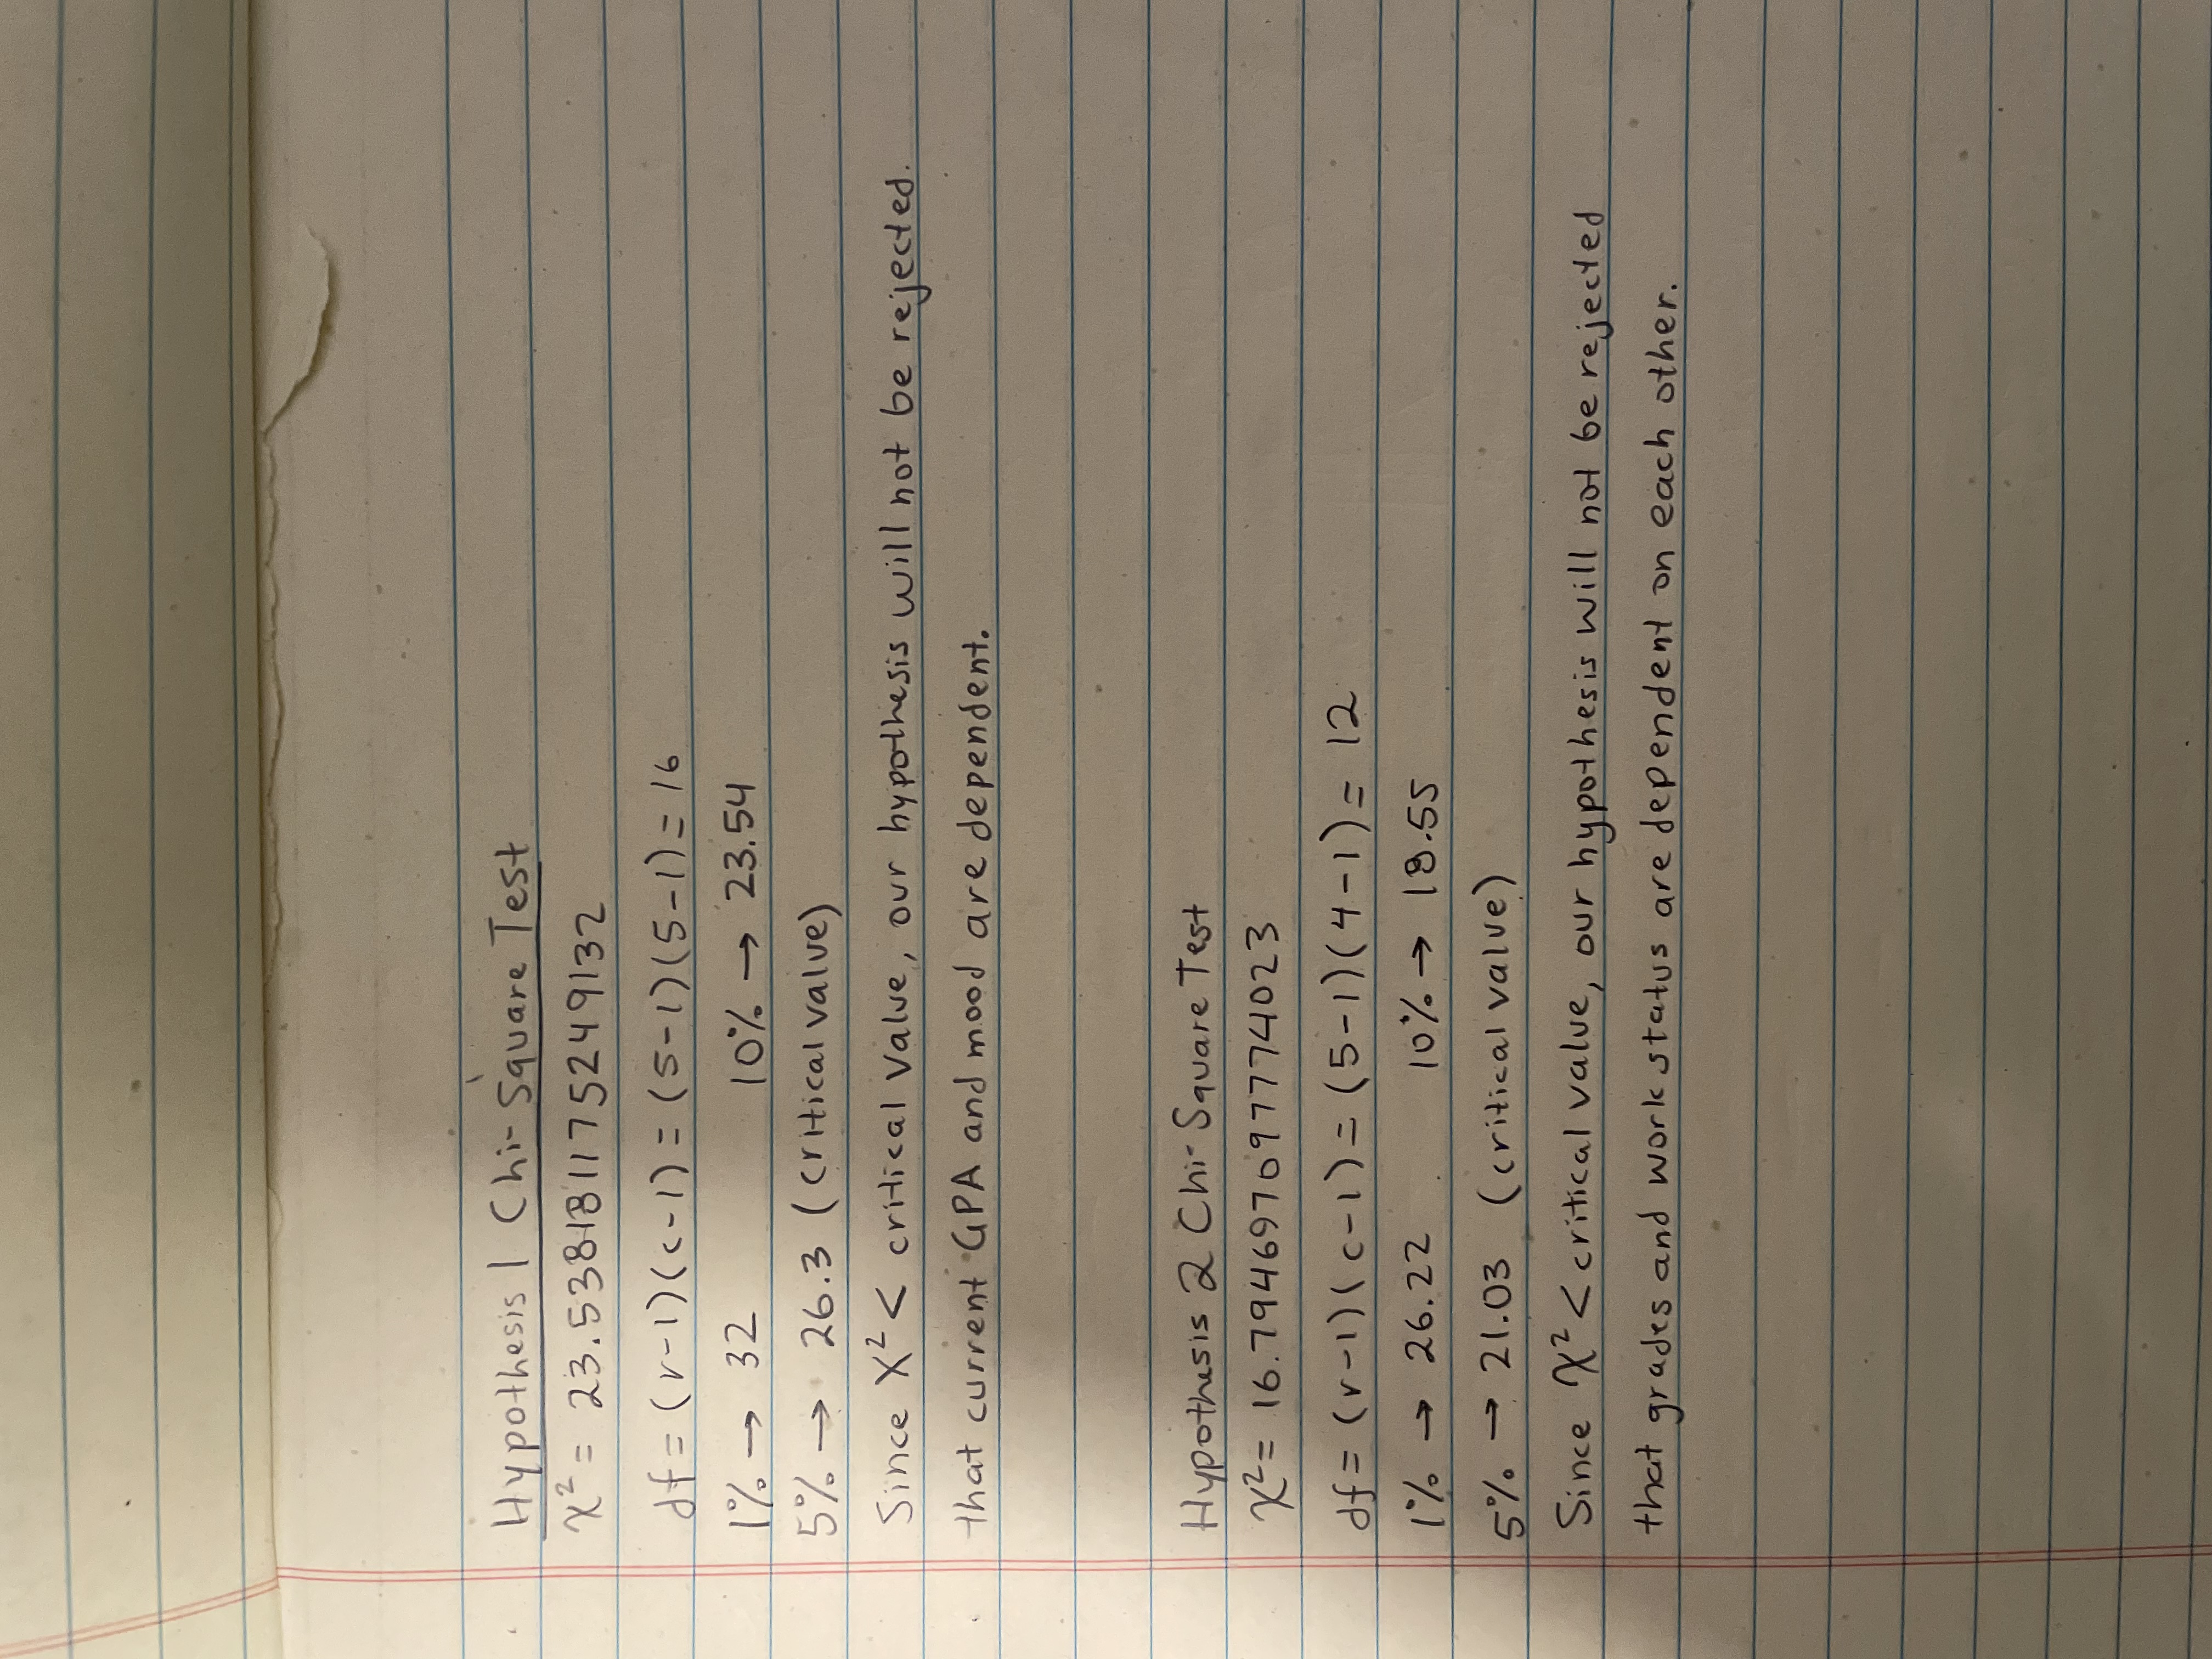 Hypothesis 1 Chi-Square Test
χ² = 23.538181175249132
df = (r-1)(c-1) = (5-1)(5-1) = 16
1% → 32 10% → 23.54
5% → 26.3 (critical value)
Since X² < critical value, our hypothesis will not be rejected.
that current GPA and mood are dependent.
Hypothesis 2 Chi-Square Test
χ² = 16.794697097774023
df = (r-1)(c-1) = (5-1)(4-1) = 12
1% → 26.22 10% → 18.55
5% → 21.03 (critical value)
Since χ² < critical value, our hypothesis will not be rejected
that grades and work status are dependent on each other.